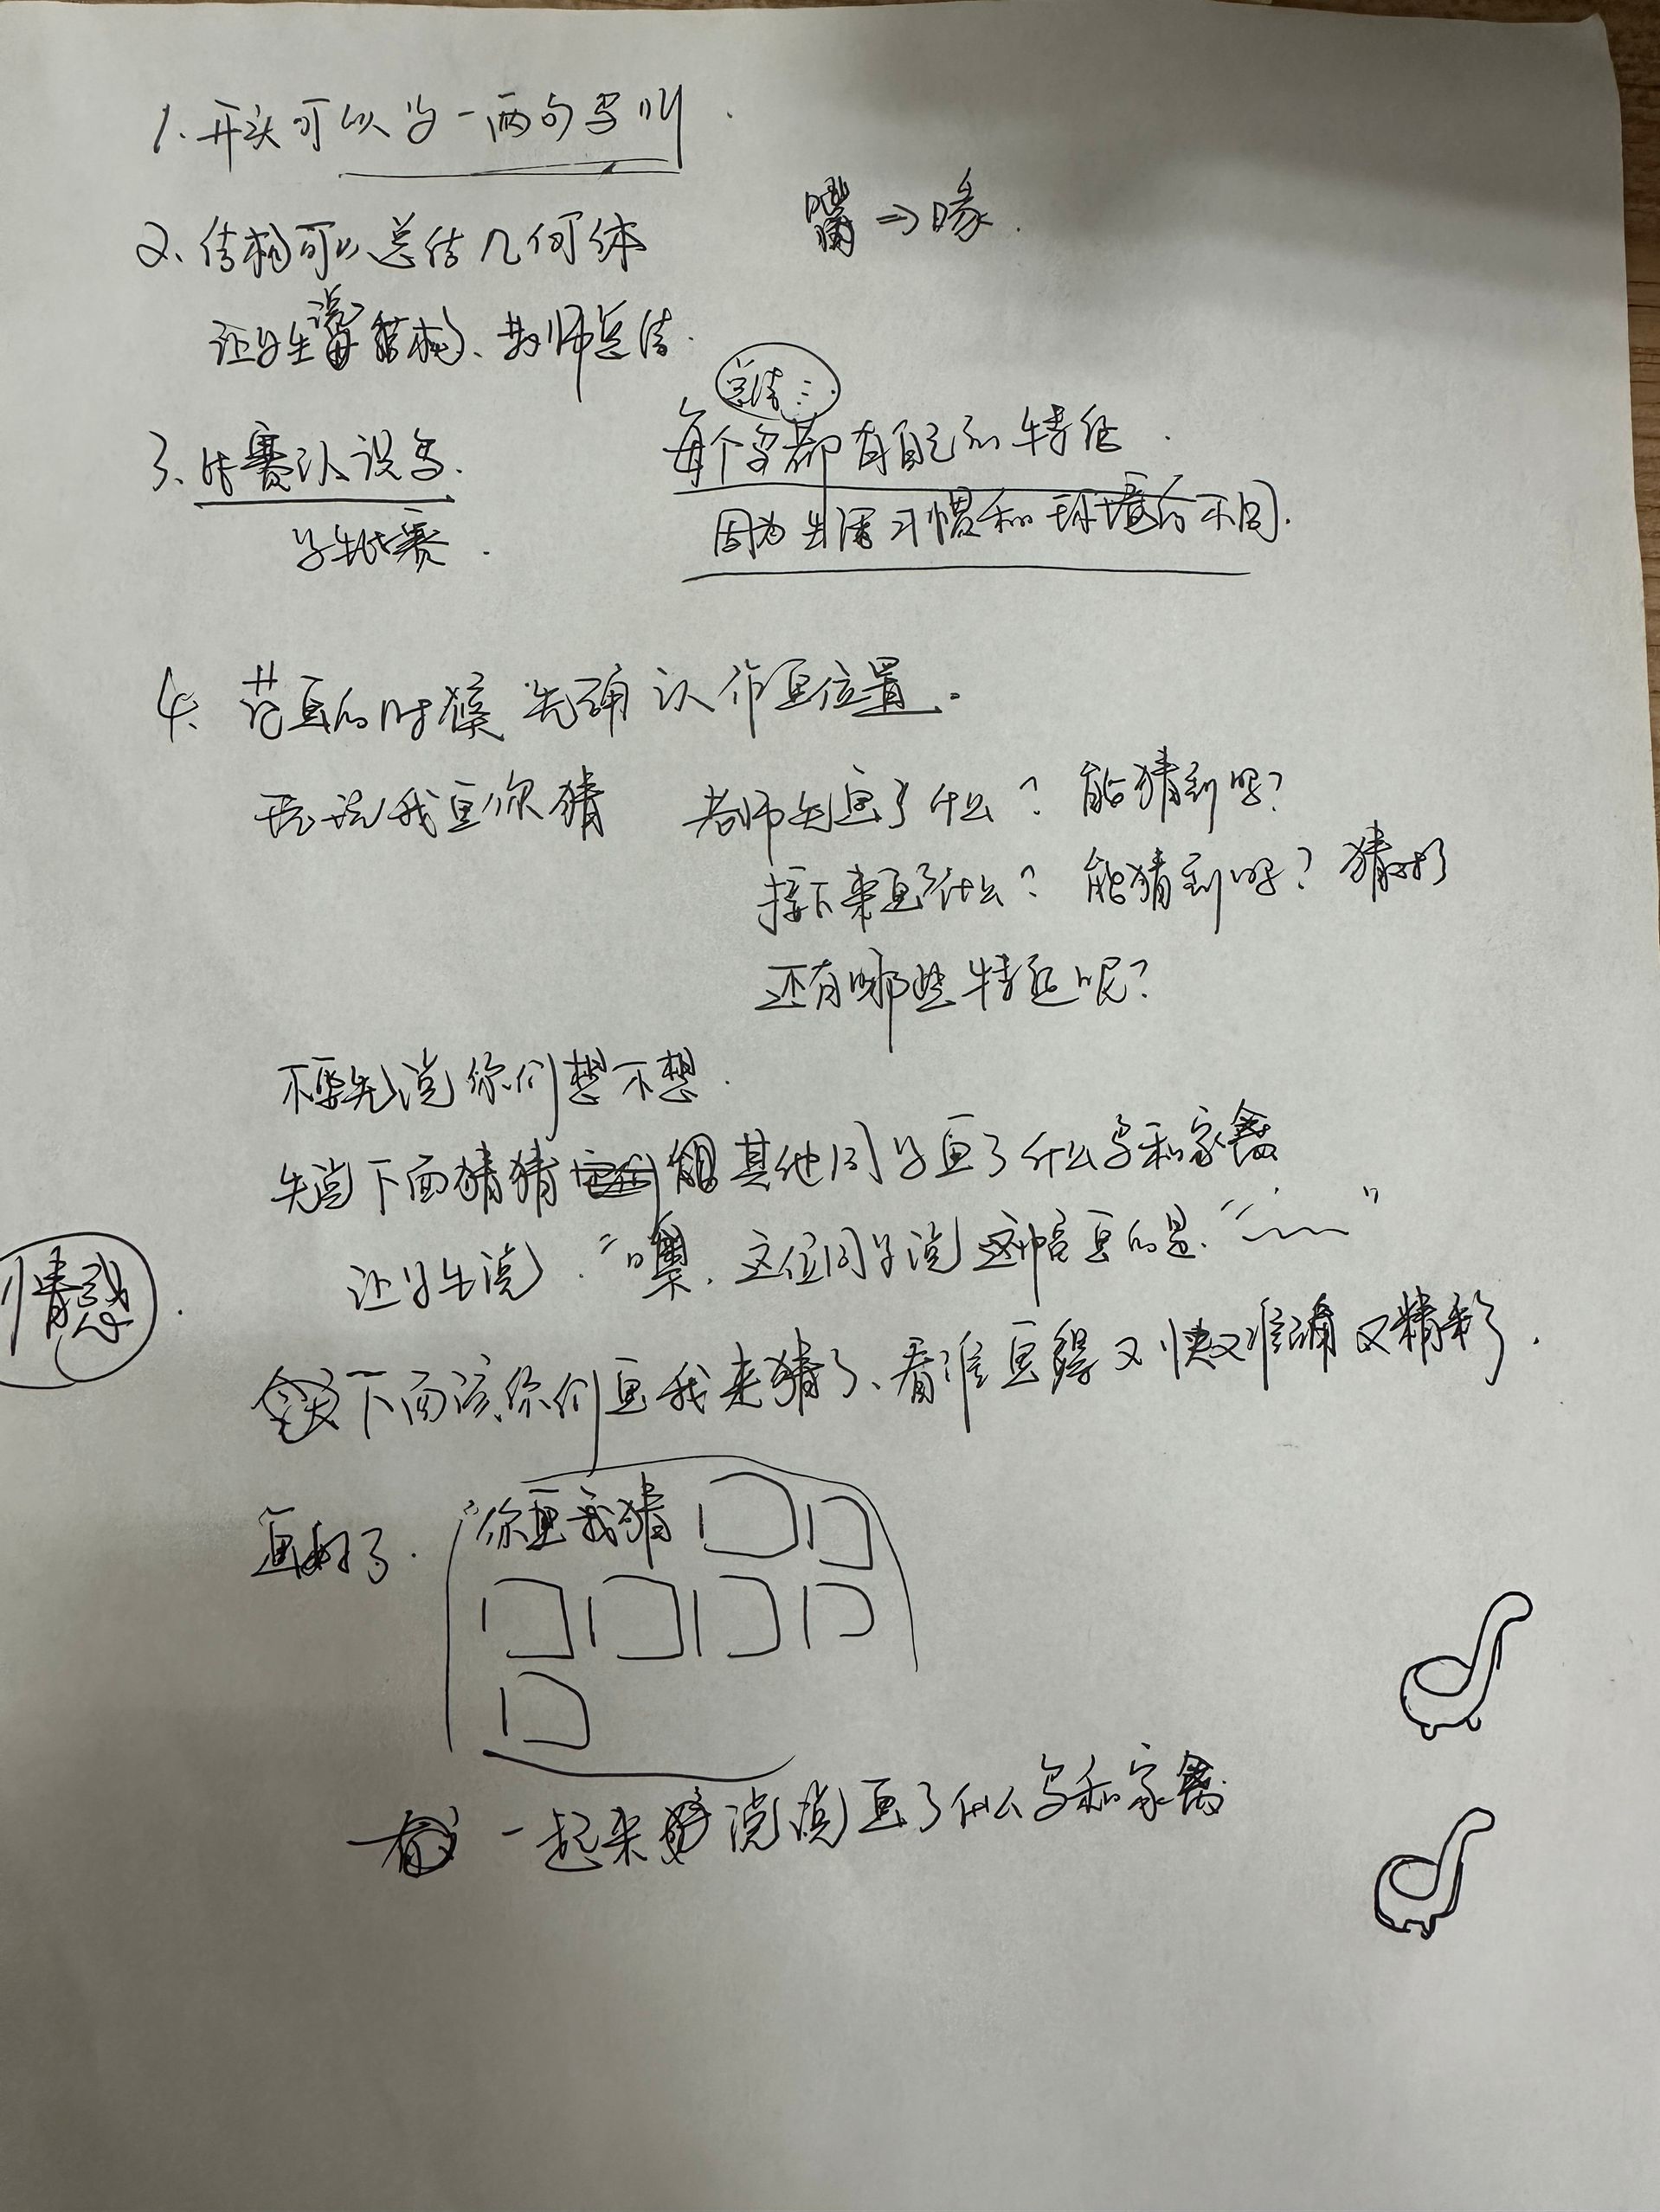 1. 开头可以学一两句鸟叫.
2. 结构可以总结几何体
嘴⇒喙.
让学生说结构、教师总结.
3. 比赛认识鸟.
学生比赛.
总结:
每个鸟都有自己的特征.
因为生活习惯和环境的不同.
4. 范画的时候先确认作画位置.
玩玩我画你猜
老师先画了什么? 能猜到吗?
接下来画了什么? 能猜到吗? 猜对了
还有哪些特征呢?
不要先说你们想不想.
先说下面猜猜其他同学画了什么鸟和家禽
让学生说, "噢, 这位同学说这幅画的是“……”
情感.
下面该你们画我来猜了、看谁画得又快又准确又精彩.
画好了.
“你画我猜
一起来说说画了什么鸟和家禽